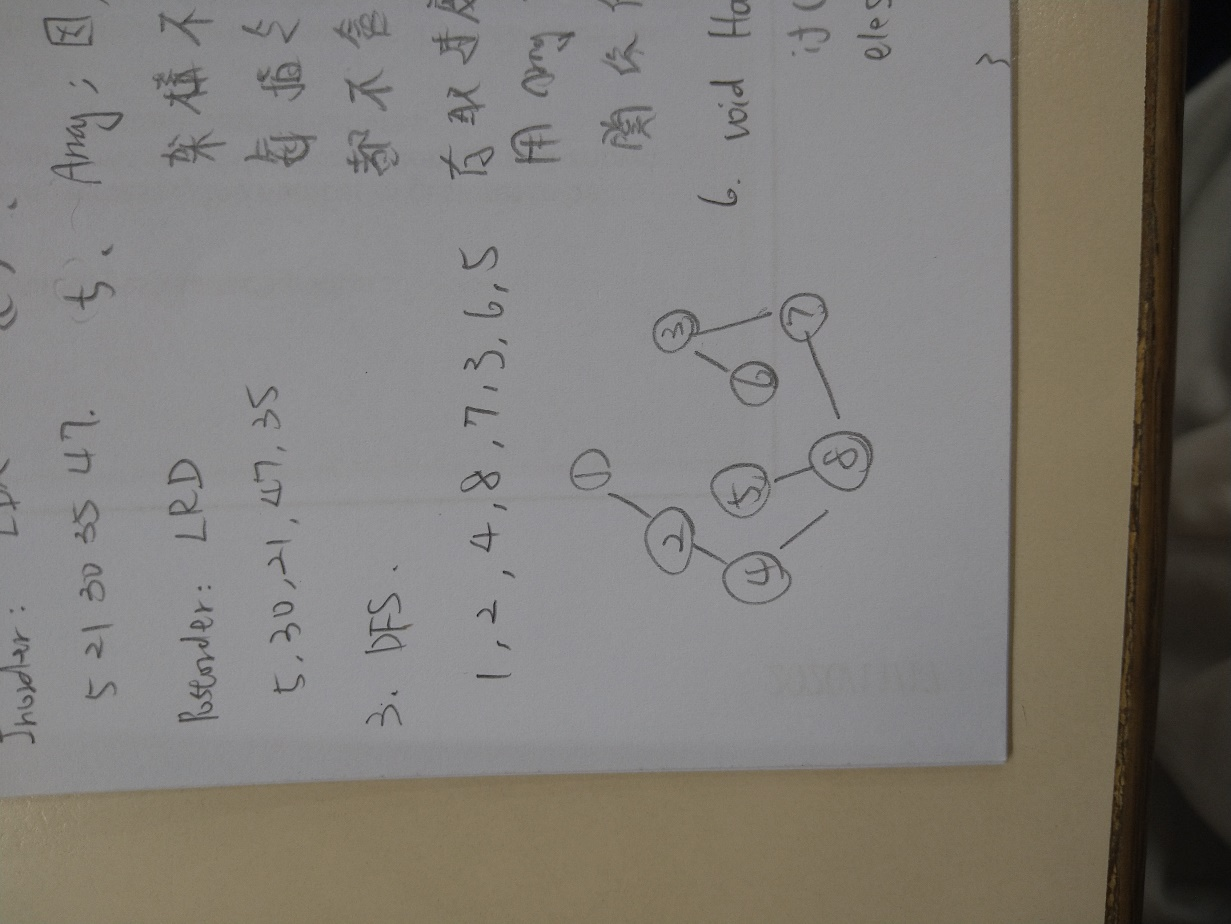 Inorder:
5 21 30 35 47.
Postorder: LRD
5,30,21,47,35
3. DFS.
1,2,4,8,7,3,6,5
1
2
4
5
8
3
6
7
5. Array; 因,
架構不
都不會
用array
關係
6. void Ha
if(
eles
}